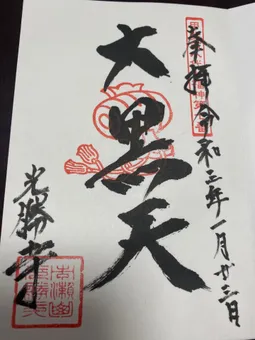 奉拝 令和三年一月廿三日
大黒天
光勝寺